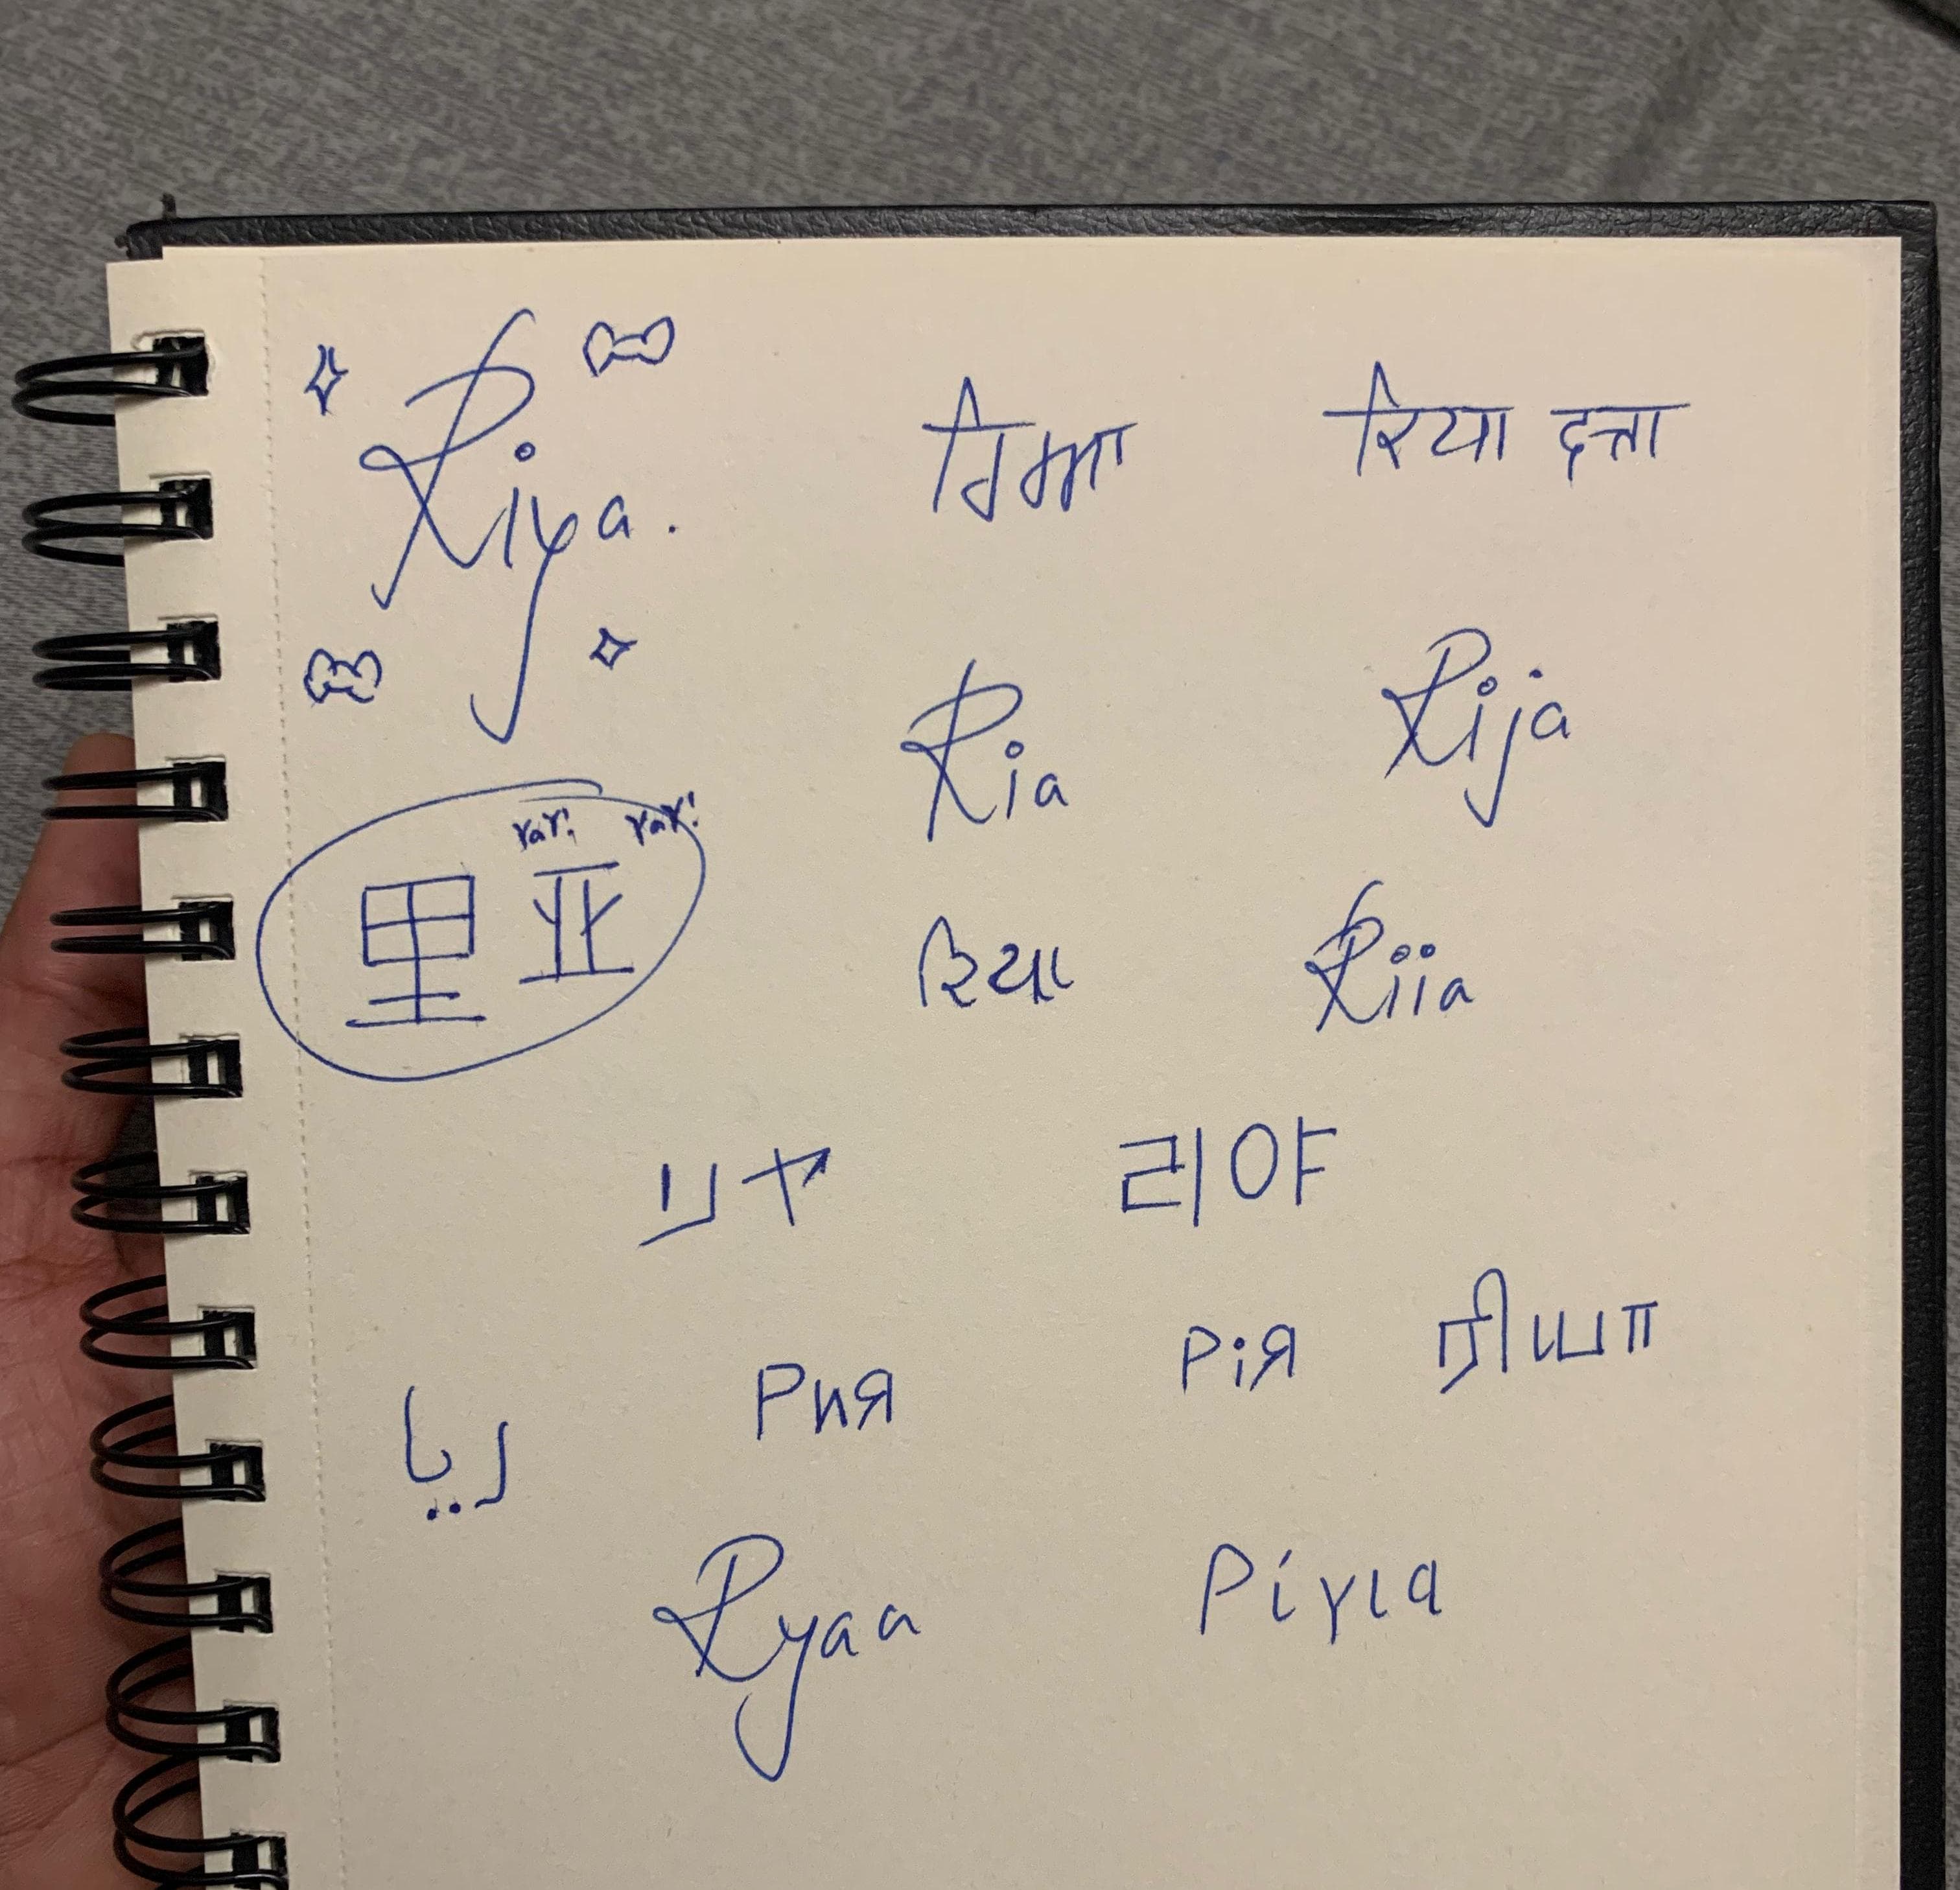 Riya. রিয়া रिया दत्ता
Ria Rija
yay! yay!
里亚
રિયા Riia
リヤ 리야
ريا Рия Рія ரியா
Ryaa Ρίγια